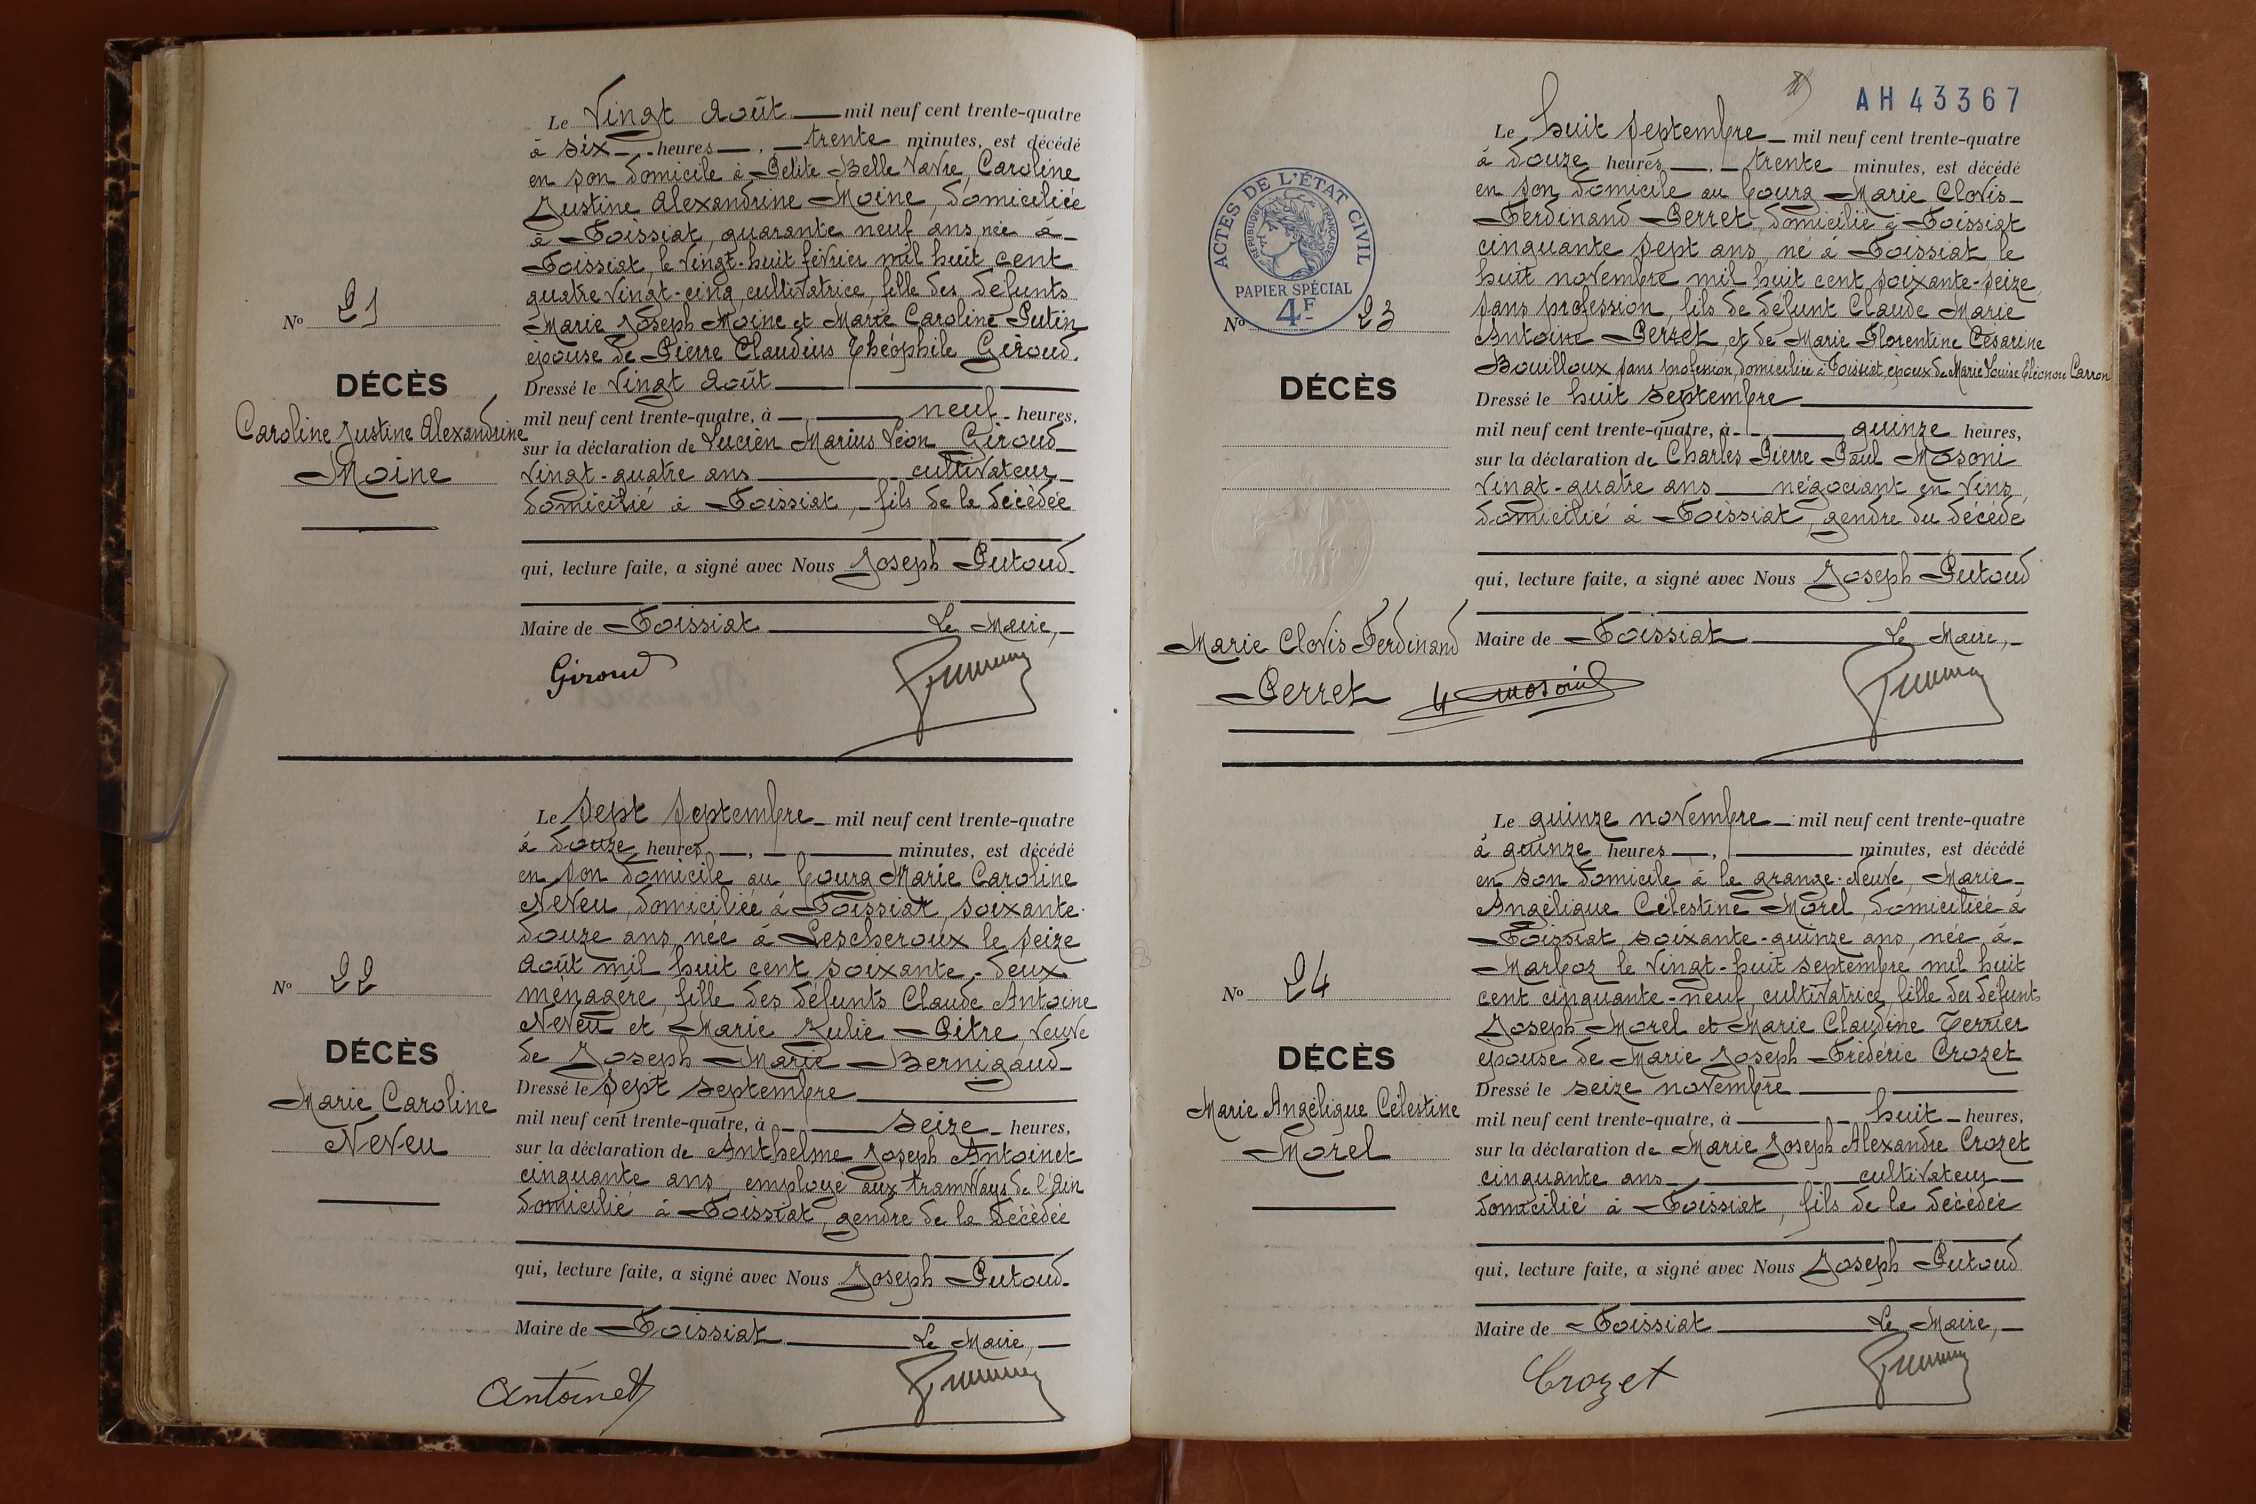 Le Vingt Août mil neuf cent trente-quatre
à six heures, trente minutes, est décédé
en son domicile à Petite Belle Vavre, Caroline
Justine Alexandrine Moine, domiciliée
à Foissiat, quarante neuf ans, née à
Foissiat, le vingt-huit février mil huit cent
quatre vingt-cinq, cultivatrice, fille des défunts
Marie Joseph Moine et Marie Caroline Putin
épouse de Pierre Claudius Théophile Giroud.
Dressé le vingt Août
mil neuf cent trente-quatre, à neuf heures,
sur la déclaration de Lucien Marius Léon Giroud
vingt-quatre ans cultivateur
domicilié à Foissiat, fils de la décédée
qui, lecture faite, a signé avec Nous Joseph Putoud
Maire de Foissiat Le Maire,
Giroud
No 21
DÉCÈS
Caroline Justine Alexandrine
Moine
Le sept septembre mil neuf cent trente-quatre
à douze heures, minutes, est décédé
en son domicile au bourg Marie Caroline
Neveu, domiciliée à Foissiat, soixante
douze ans, née à Lescheroux le seize
Août mil huit cent soixante-deux
ménagère, fille des défunts Claude Antoine
Neveu et Marie Julie Pitre veuve
de Joseph Marie Bernigaud
Dressé le sept septembre
mil neuf cent trente-quatre, à seize heures,
sur la déclaration de Anthelme Joseph Antoinet
cinquante ans, employé aux tramways de l'Ain
domicilié à Foissiat, gendre de la décédée
qui, lecture faite, a signé avec Nous Joseph Putoud
Maire de Foissiat Le Maire,
Antoinet
No 22
DÉCÈS
Marie Caroline
Neveu
AH 43367
ACTES DE L'ÉTAT CIVIL
RÉPUBLIQUE FRANÇAISE
PAPIER SPÉCIAL
4F
Le huit septembre mil neuf cent trente-quatre
à douze heures, trente minutes, est décédé
en son domicile au bourg Marie Clovis
Ferdinand Perret, domicilié à Foissiat
cinquante sept ans, né à Foissiat le
huit novembre mil huit cent soixante-seize,
sans profession, fils de défunt Claude Marie
Antoine Perret, et de Marie Florentine Césarine
Bouilloux sans profession, domiciliée à Foissiat, époux de Marie Louise Eléonore Carron
Dressé le huit septembre
mil neuf cent trente-quatre, à quinze heures,
sur la déclaration de Charles Pierre Paul Mosoni
vingt-quatre ans négociant en vins,
domicilié à Foissiat, gendre du décédé
qui, lecture faite, a signé avec Nous Joseph Putoud
Maire de Foissiat Le Maire,
No 23
DÉCÈS
Marie Clovis Ferdinand
Perret
Le quinze novembre mil neuf cent trente-quatre
à quinze heures, minutes, est décédé
en son domicile à la grange-Neuve, Marie
Angélique Célestine Morel, domiciliée à
Foissiat, soixante-quinze ans, née à
Marboz le vingt-huit septembre mil huit
cent cinquante-neuf, cultivatrice, fille des défunts
Joseph Morel et Marie Claudine Terrier
épouse de Marie Joseph Frédéric Crozet
Dressé le seize novembre
mil neuf cent trente-quatre, à huit heures,
sur la déclaration de Marie Joseph Alexandre Crozet
cinquante ans, cultivateur
domicilié à Foissiat, fils de la décédée
qui, lecture faite, a signé avec Nous Joseph Putoud
Maire de Foissiat Le Maire,
Crozet
No 24
DÉCÈS
Marie Angélique Célestine
Morel